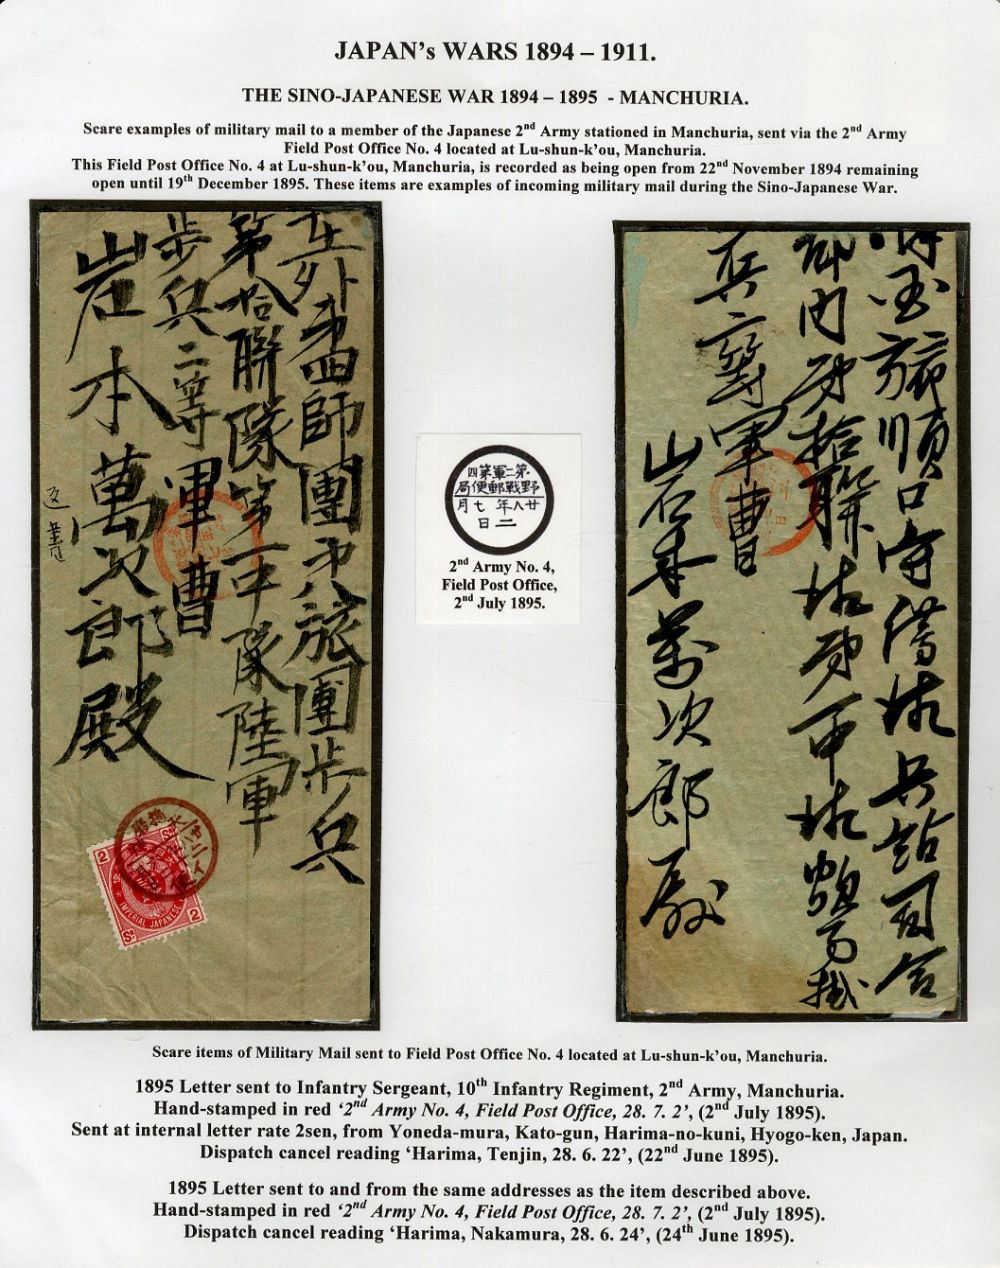 JAPAN's WARS 1894 – 1911.
THE SINO-JAPANESE WAR 1894 – 1895 - MANCHURIA.
Scare examples of military mail to a member of the Japanese 2nd Army stationed in Manchuria, sent via the 2nd Army
Field Post Office No. 4 located at Lu-shun-k'ou, Manchuria.
This Field Post Office No. 4 at Lu-shun-k'ou, Manchuria, is recorded as being open from 22nd November 1894 remaining
open until 19th December 1895. These items are examples of incoming military mail during the Sino-Japanese War.
在外第四師團第八旅團歩兵
第拾聯隊第一中隊陸軍
歩兵二等軍曹
岩本萬次郎殿
2 2
IMPERIAL JAPANESE
第二軍第四
野戰郵便局
廿八年七月
二日
2nd Army No. 4,
Field Post Office,
2nd July 1895.
旅順口守備隊兵站司令
部内第拾聯隊第一中隊
兵二等軍曹
岩本萬次郎殿
Scare items of Military Mail sent to Field Post Office No. 4 located at Lu-shun-k'ou, Manchuria.
1895 Letter sent to Infantry Sergeant, 10th Infantry Regiment, 2nd Army, Manchuria.
Hand-stamped in red '2nd Army No. 4, Field Post Office, 28. 7. 2', (2nd July 1895).
Sent at internal letter rate 2sen, from Yoneda-mura, Kato-gun, Harima-no-kuni, Hyogo-ken, Japan.
Dispatch cancel reading 'Harima, Tenjin, 28. 6. 22', (22nd June 1895).
1895 Letter sent to and from the same addresses as the item described above.
Hand-stamped in red '2nd Army No. 4, Field Post Office, 28. 7. 2', (2nd July 1895).
Dispatch cancel reading 'Harima, Nakamura, 28. 6. 24', (24th June 1895).